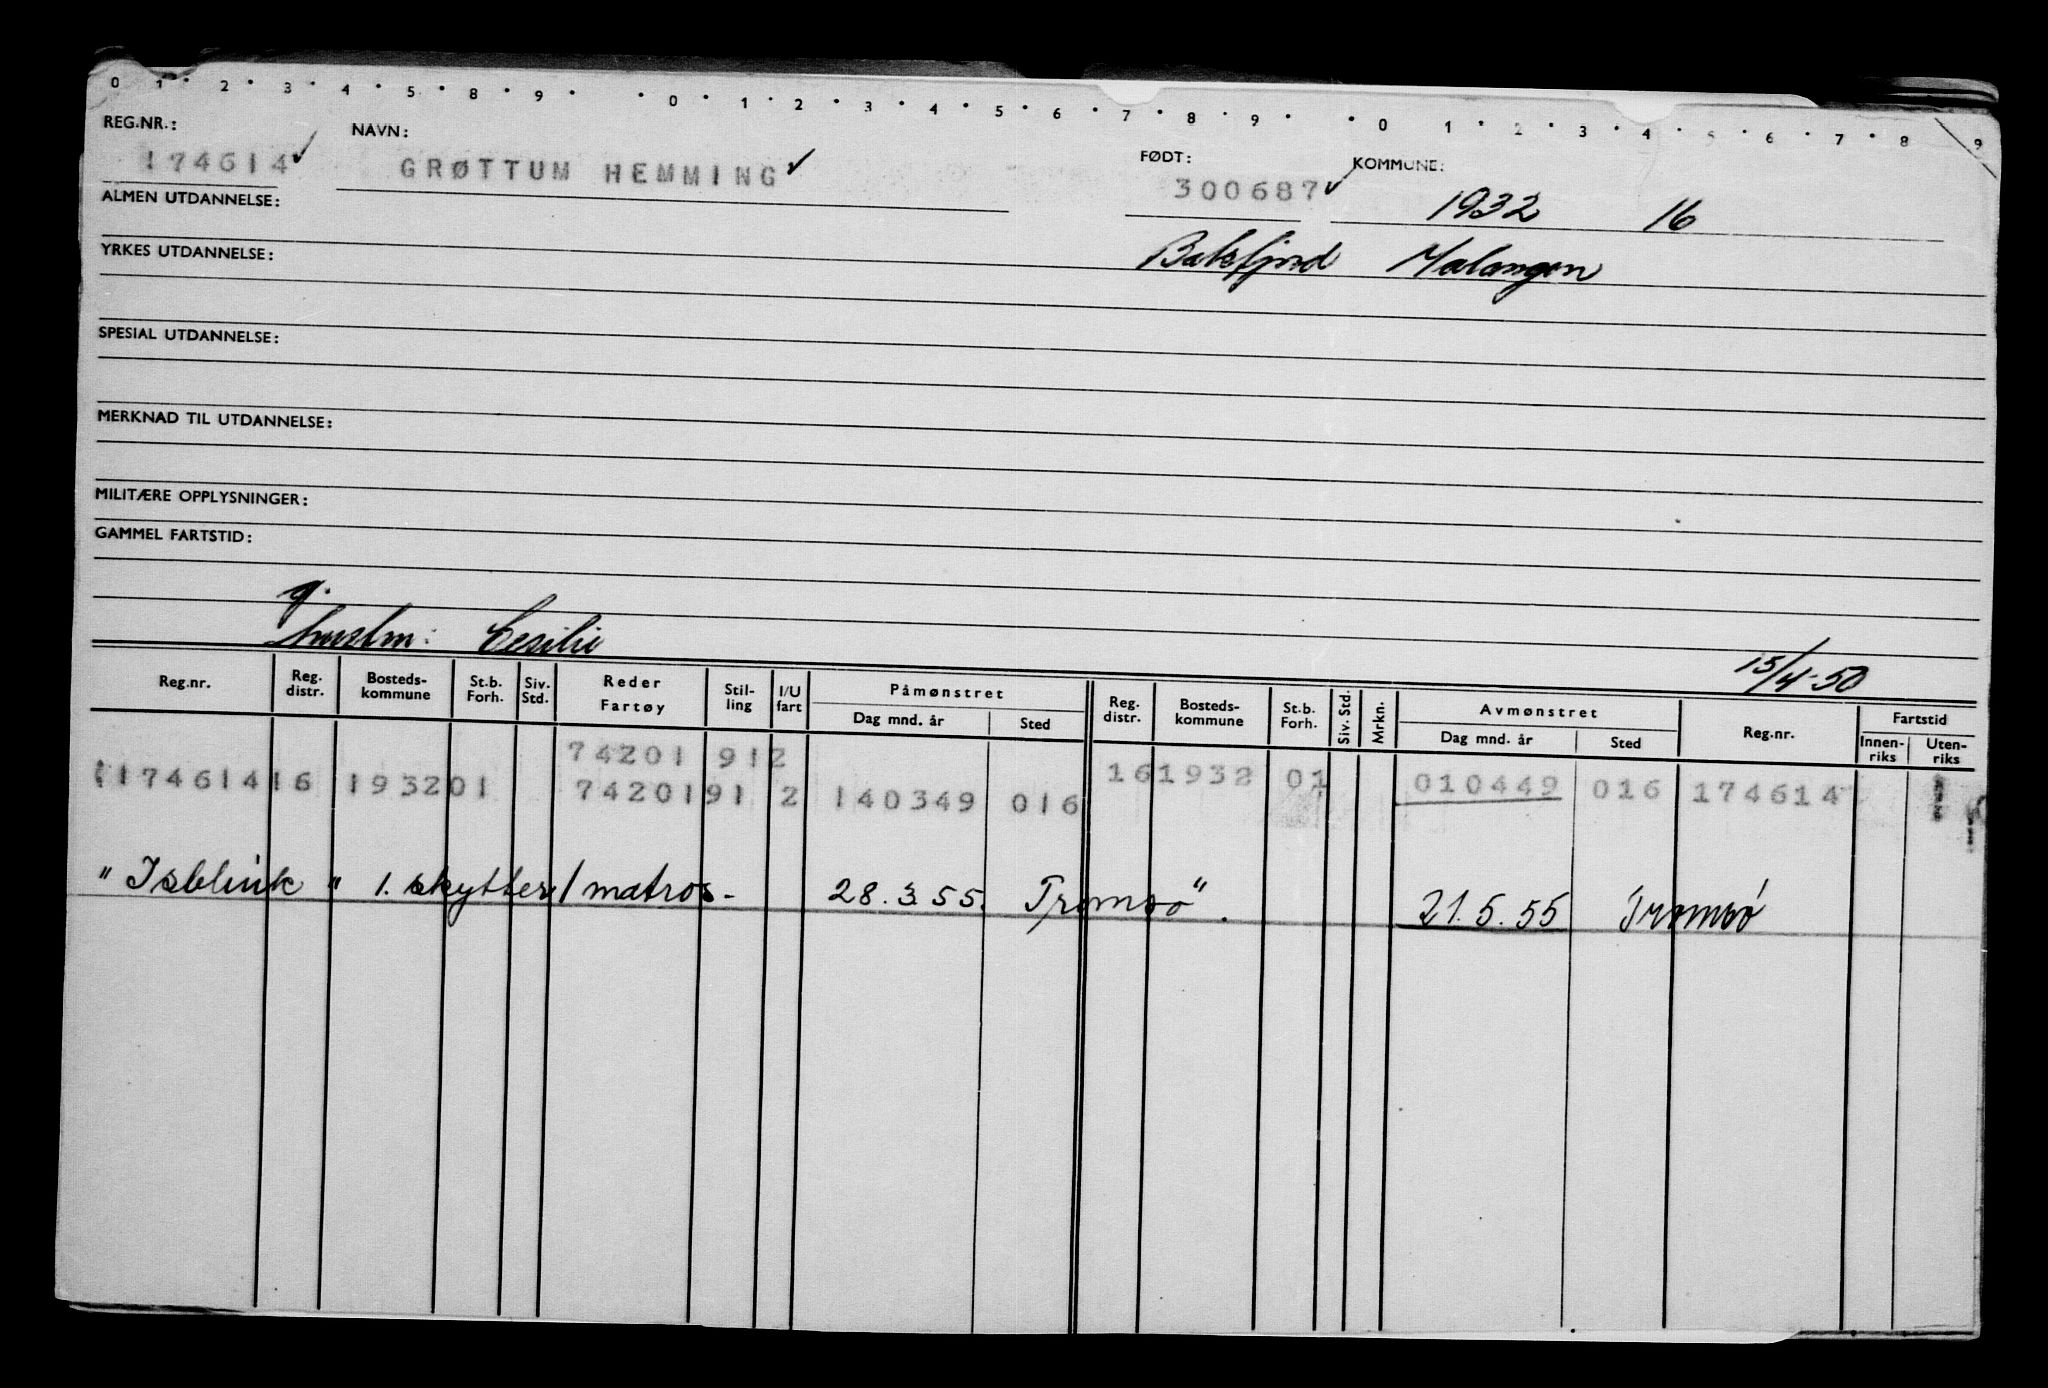 0 1 · 2 · 3 · 4 · 5 · 8 · 9 · · 0 · 1 · 2 · 3 · 4 · 5 · 6 · 7 · 8 · 9 · · 0 1 · 2 · 3 · 4 · 5 · 6 · 7 · 8 · 9
REG.NR.: NAVN: FØDT: KOMMUNE:
174614 ✓ GRØTTUM HEMMING ✓ 300687 ✓ 1932 16
ALMEN UTDANNELSE:
Balsfjord Malangen
YRKES UTDANNELSE:
SPESIAL UTDANNELSE:
MERKNAD TIL UTDANNELSE:
MILITÆRE OPPLYSNINGER:
GAMMEL FARTSTID:
g.
hustru: Cesilie 15/4-50
Reg.nr. Reg. distr. Bosteds-kommune St.b. Forh. Siv. Std. Reder Fartøy Stil-ling I/U fart Påmønstret Dag mnd. år Sted Reg. distr. Bosteds-kommune St.b. Forh. Siv. Std. Mrkn. Avmønstret Dag mnd. år Sted Reg.nr. Fartstid Innen-riks Uten-riks
74201 912
174614 16 1932 01 74201 91 2 140349 016 16 1932 01 010449 016 174614
"Isblink" 1. skytter/matros - 28.3.55. Tromsø". 21.5.55 Tromsø